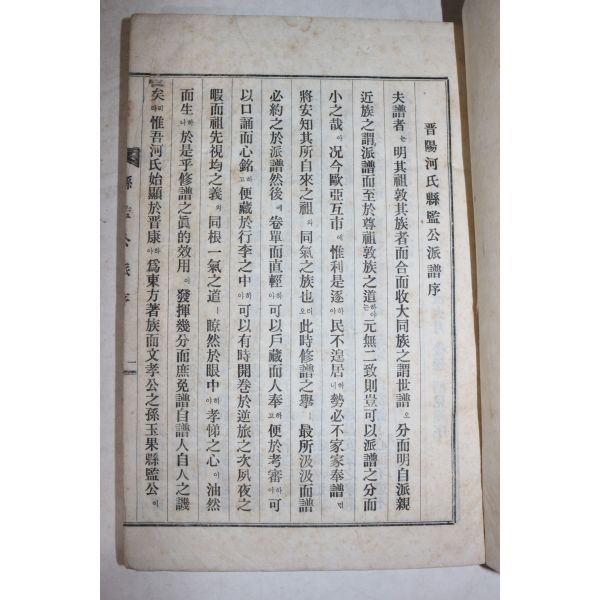 晋陽河氏縣監公派譜序
夫譜者는明其祖敦其族者而合而收大同族之謂世譜오分而明自派親
近族之謂派譜而至於尊祖敦族之道하야는元無二致則豈可以派譜之分而
小之哉아况今歐亞互市에惟利是逐하야民不遑居하니勢必不家家奉譜면
將安知其所自來之祖와同氣之族也리오此時修譜之擧ㅣ最所汲汲而譜
必約之於派譜然後에卷單而直輕하야可以戶藏而人奉하고便於考審하야可
以口誦而心銘하고便藏於行李之中하야可以有時開卷於逆旅之次夙夜之
暇而祖先視均之義와同根一氣之道ㅣ瞭然於眼中하야孝悌之心이油然
而生하나於是乎修譜之眞的效用이發揮幾分而庶免譜自譜人自人之譏
矣라惟吾河氏始顯於晋康하야爲東方著族而文孝公之孫玉果縣監公이
縣監公派序
一